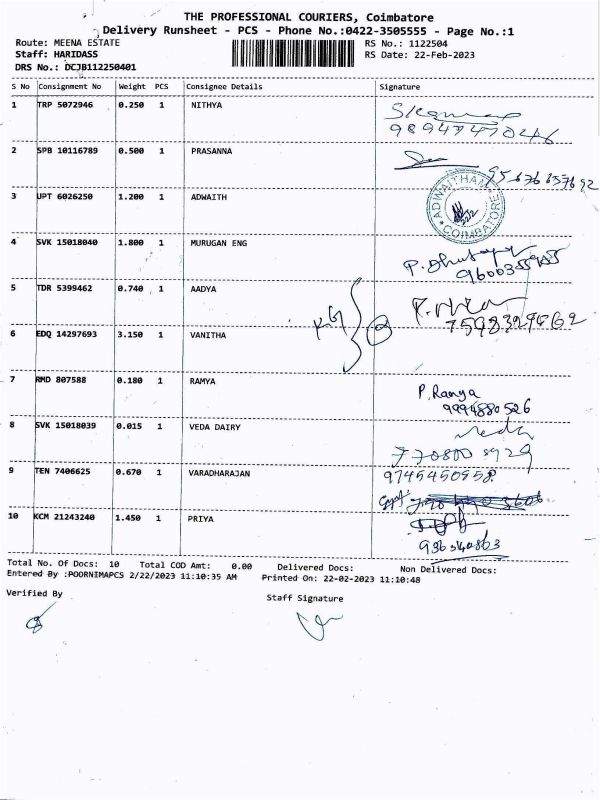 THE PROFESSIONAL COURIERS, Coimbatore
Delivery Runsheet - PCS - Phone No.:0422-3505555 - Page No.:1
Route: MEENA ESTATE RS No.: 1122504
Staff: HARIDASS RS Date: 22-Feb-2023
DRS No.: DCJB112250401
S No Consignment No Weight PCS Consignee Details Signature
1 TRP 5072946 0.250 1 NITHYA
2 SPB 10116789 0.500 1 PRASANNA
3 UPT 6026250 1.200 1 ADWAITH
ADWAITHAM
COIMBATORE
4 SVK 15018040 1.800 1 MURUGAN ENG
5 TDR 5399462 0.740 1 AADYA
6 EDQ 14297693 3.150 1 VANITHA
7 RMD 807588 0.180 1 RAMYA P. Ramya
9994880526
8 SVK 15018039 0.015 1 VEDA DAIRY Veda
770800 8929
9 TEN 7406625 0.670 1 VARADHARAJAN 9745450958
10 KCM 21243240 1.450 1 PRIYA
Total No. Of Docs: 10 Total COD Amt: 0.00 Delivered Docs: Non Delivered Docs:
Entered By :POORNIMAPCS 2/22/2023 11:10:35 AM Printed On: 22-02-2023 11:10:48
Verified By Staff Signature